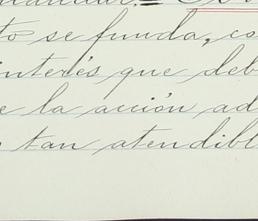 to se funda, co
interés que deb
e la acción ad
s tan atendibl